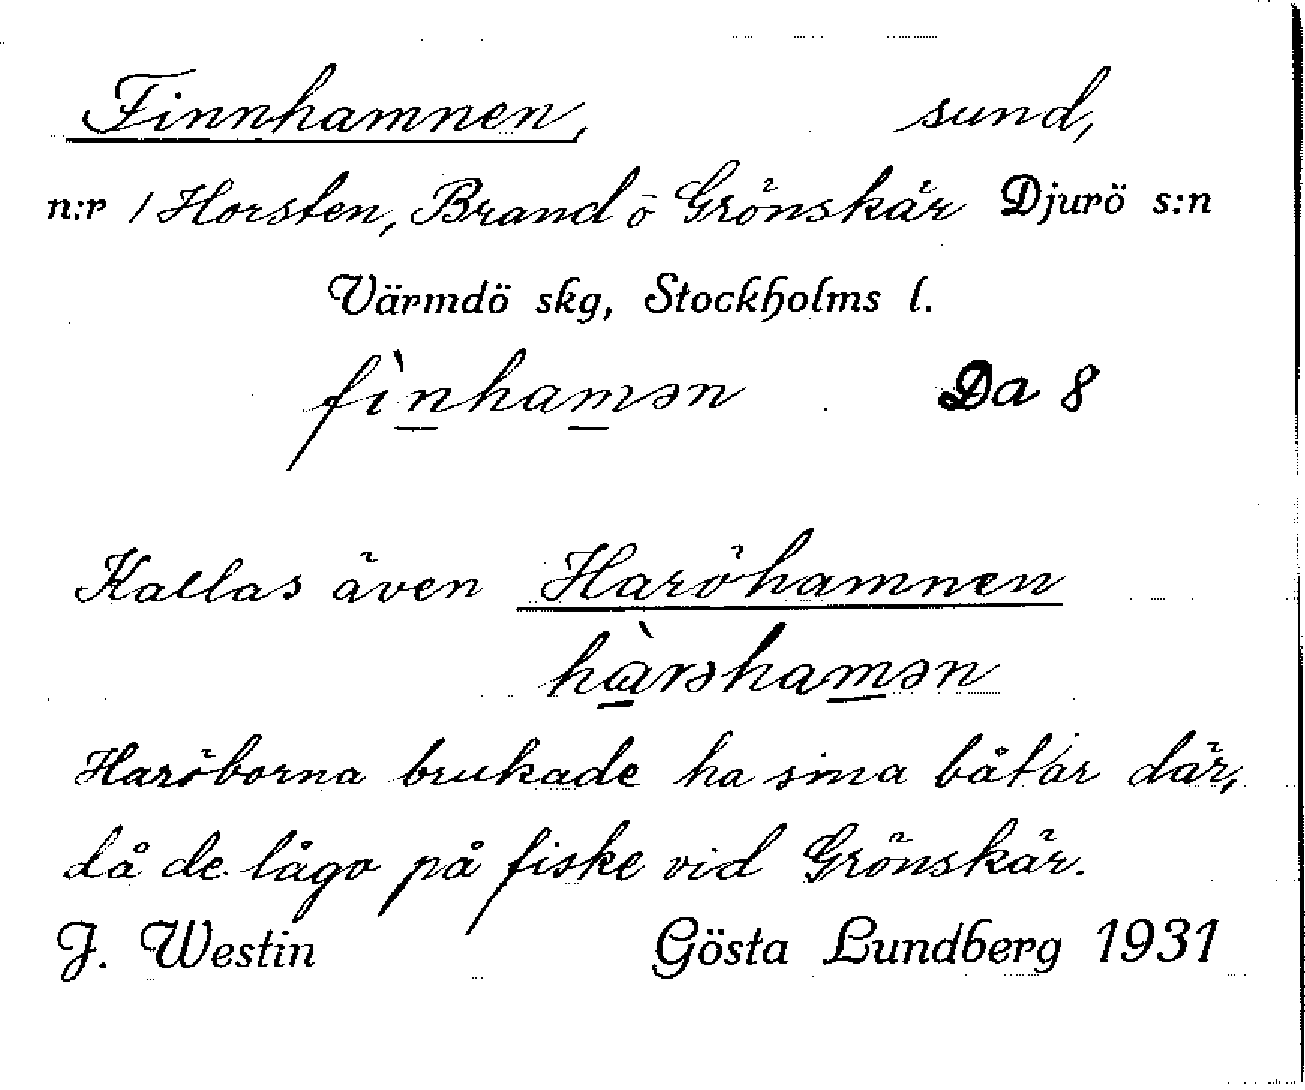 Finnhamnen, sund,
n:r 1 Horsten, Brand ö Grönskär Djurö s:n
Värmdö skg, Stockholms l.
fìnhamən Da 8
Kallas även Haröhamnen
hàrəhamən
Haröborna brukade ha sina båtar där,
då de lågo på fiske vid Grönskär.
J. Westin Gösta Lundberg 1931